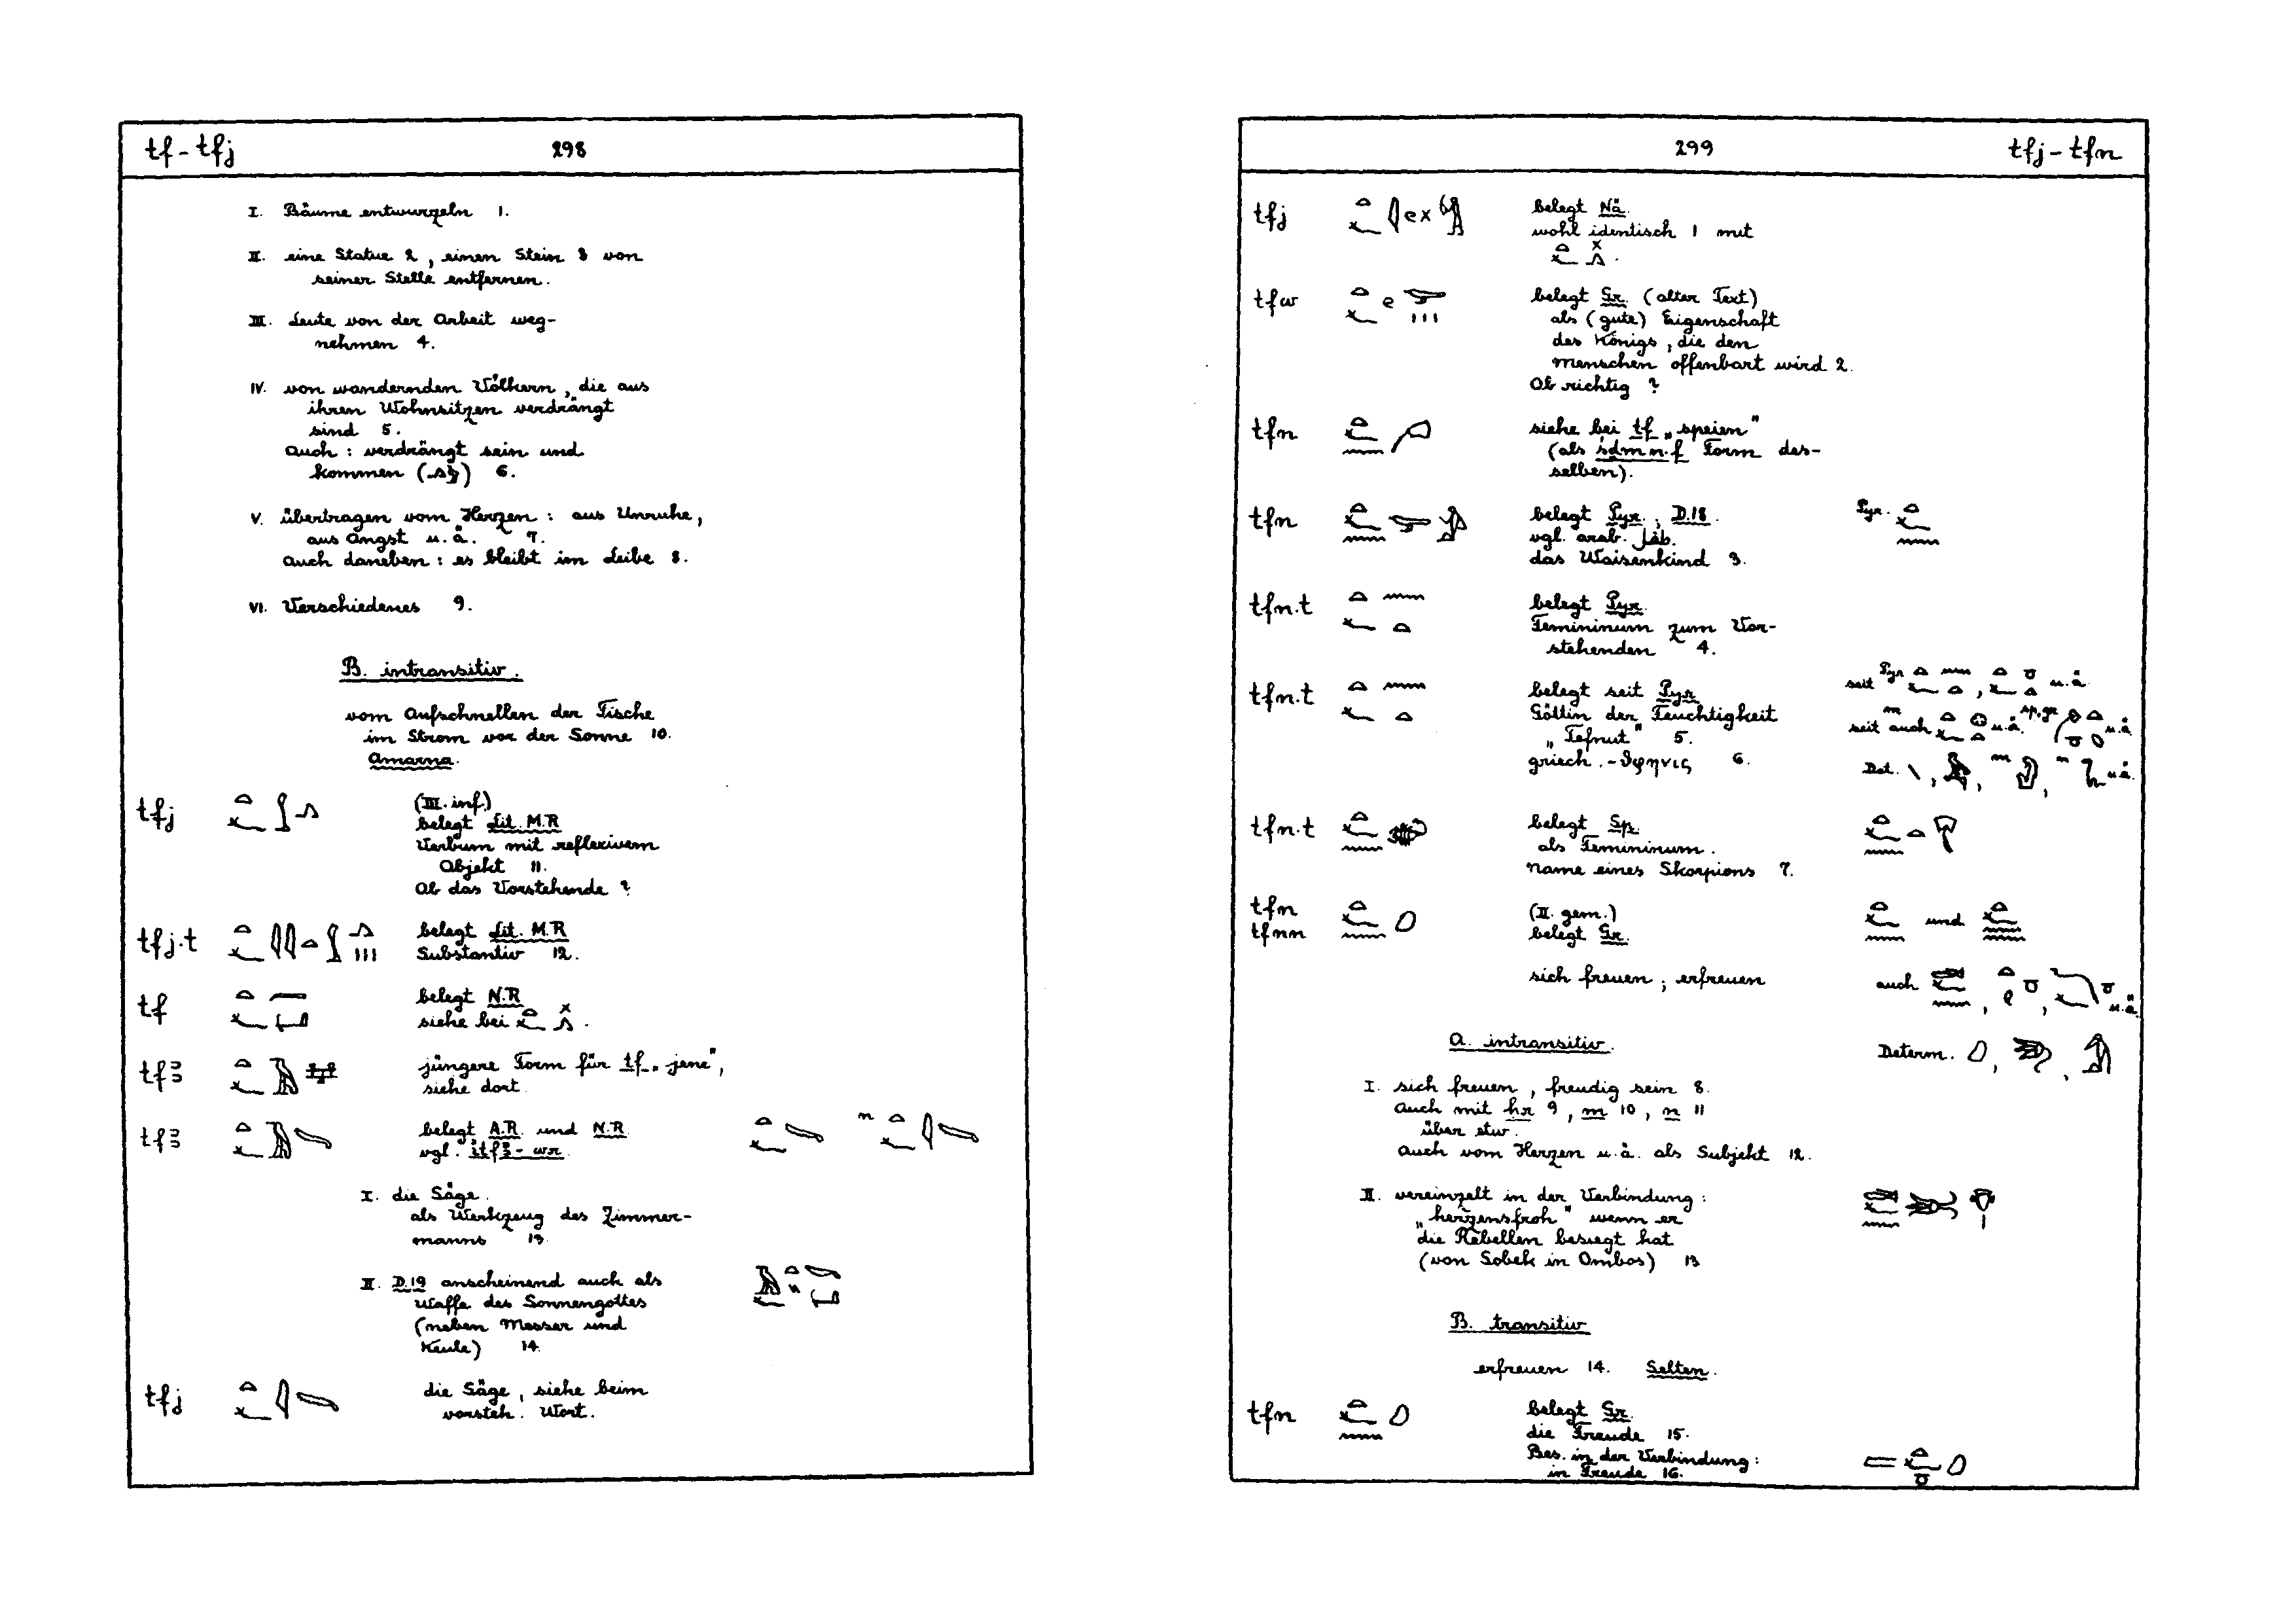 tf - tfj 298
I. Bäume entwurzeln 1.
II. eine Statue 2, einen Stein 3 von
seiner Stelle entfernen.
III. Leute von der Arbeit weg-
nehmen 4.
IV. von wandernden Völkern, die aus
ihren Wohnsitzen verdrängt
sind 5.
Auch: verdrängt sein und
kommen 6.
V. übertragen vom Herzen: aus Unruhe,
aus Angst u.ä. 7.
Auch daneben: es bleibt im Leibe 8.
VI. Verschiedenes 9.
B. intransitiv.
vom Aufschnellen der Fische
im Strom vor der Sonne 10.
Amarna.
tfj (III. inf.)
belegt Lit. M.R
Verbum mit reflexivem
Objekt 11.
Ob das Vorstehende ?
tfj.t belegt Lit. M.R
Substantiv 12.
tf belegt N.R
siehe bei
tfꜣ jüngere Form für tf „jene",
siehe dort
tfꜣ belegt A.R. und N.R.
vgl. itfꜣ - wr.
I. die Säge.
als Werkzeug des Zimmer-
manns 13.
II. D.19 anscheinend auch als
Waffe des Sonnengottes
(neben Messer und
Keule) 14.
tfj die Säge, siehe beim
vorsteh. Wort.
299 tfj - tfn
tfj belegt Nä.
wohl identisch 1 mit
tfw belegt Gr. (alter Text)
als (gute) Eigenschaft
des Königs, die den
Menschen offenbart wird 2.
Ob richtig ?
tfn siehe bei tf „speien"
(als sdm.n.f Form des-
selben).
tfn belegt Pyr., D.18. Pyr.
vgl. arab.
das Waisenkind 3.
tfn.t belegt Pyr.
Femininum zum Vor-
stehenden 4.
tfn.t belegt seit Pyr. seit Pyr u.ä
Göttin der Feuchtigkeit seit m auch u.ä. sp.gr u.ä
„Tefnut" 5.
griech. -θφηνις 6. Det. u.ä.
tfn.t belegt Sp.
als Femininum.
Name eines Skorpions 7.
tfn (II. gem.) und
tfnn belegt Gr.
sich freuen; erfreuen auch u.ä
A. intransitiv. Determ.
I. sich freuen, freudig sein 8.
Auch mit ḥr 9, m 10, n 11
über etw.
Auch vom Herzen u.ä. als Subjekt 12.
II. vereinzelt in der Verbindung:
„herzensfroh" wenn er
die Rebellen besiegt hat
(von Sobek in Ombos) 13
B. transitiv
erfreuen 14. Selten.
tfn belegt Gr.
die Freude 15.
Bes. in der Verbindung:
in Freude 16.